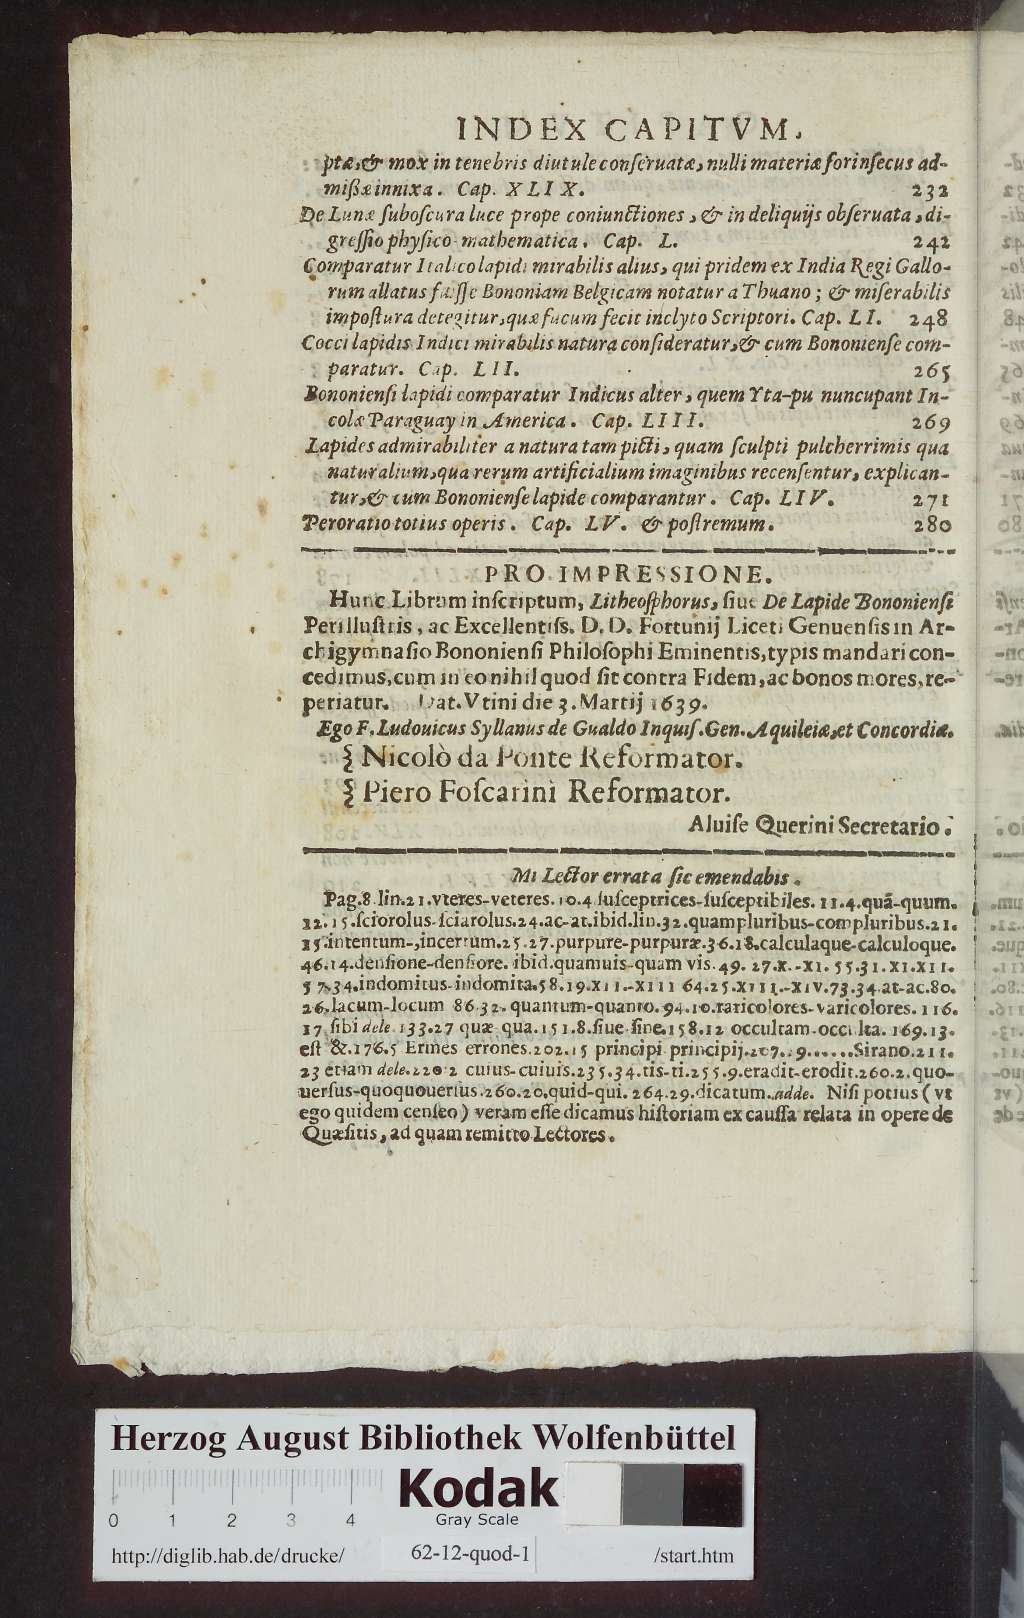 INDEX CAPITVM.
ptæ, & mox in tenebris diutule conſeruatæ, nulli materiæ forinſecus ad-
mißæ innixa. Cap. XLIX. 232
De Lunæ ſuboſcura luce prope coniunctiones, & in deliquijs obſeruata, di-
greſſio phyſico-mathematica. Cap. L. 242
Comparatur Italico lapidi mirabilis alius, qui pridem ex India Regi Gallo-
rum allatus fuiſſe Bononiam Belgicam notatur a Thuano; & miſerabilis
impoſtura detegitur, quæ fucum fecit inclyto Scriptori. Cap. LI. 248
Cocci lapidis Indici mirabilis natura conſideratur, & cum Bononienſe com-
paratur. Cap. LII. 265
Bononienſi lapidi comparatur Indicus alter, quem Yta-pu nuncupant In-
colæ Paraguay in America. Cap. LIII. 269
Lapides admirabiliter a natura tam picti, quam ſculpti pulcherrimis qua
naturalium, qua rerum artificialium imaginibus recenſentur, explican-
tur, & cum Bononienſe lapide comparantur. Cap. LIV. 271
Peroratio totius operis. Cap. LV. & poſtremum. 280
PRO IMPRESSIONE.
Hunc Librum inſcriptum, Litheoſphorus, ſiue De Lapide Bononienſi
Perilluſtris, ac Excellentiſs. D. D. Fortunij Liceti Genuenſis in Ar-
chigymnaſio Bononienſi Philoſophi Eminentis, typis mandari con-
cedimus, cum in eo nihil quod ſit contra Fidem, ac bonos mores, re-
periatur. Dat. Vtini die 3. Martij 1639.
Ego F. Ludouicus Syllanus de Gualdo Inquiſ. Gen. Aquileiæ, et Concordiæ.
{ Nicolò da Ponte Reformator.
{ Piero Foſcarini Reformator.
Aluiſe Querini Secretario.
Mi Lector errata ſic emendabis.
Pag.8.lin.21.vteres-veteres.10.4 ſuſceptrices-ſuſceptibiles. 11.4.quã-quum.
12.15.ſciorolus-ſciarolus.24.ac-at.ibid.lin.32.quampluribus-compluribus.21.
35.intentum-,incertum.25.27.purpure-purpuræ.36.18.calculaque-calculoque.
46.14.denſione-denſiore. ibid.quamuis-quam vis.49. 27.x.-xi. 55.31.xi.xii.
57.34.indomitus-indomita.58.19.xii.-xiii 64.25.xiii.-xiv.73.34.at-ac.80.
26.lacum-locum 86.32. quantum-quanto. 94.10.raricolores-varicolores. 116.
17.ſibi dele. 133.27 quæ qua.151.8.ſiue ſine.158.12 occultam-occulta. 169.13.
eſt &.176.5 Ermes errones.202.15 principi principij.207..9......Sirano.211.
23 etiam dele.220 2 cuius-cuiuis.235.34.tis-ti.255.9.eradit-erodit.260.2.quo-
uerſus-quoquouerſus.260.20.quid-qui. 264.29.dicatum. adde. Niſi potius (vt
ego quidem cenſeo) veram eſſe dicamus hiſtoriam ex cauſſa relata in opere de
Quæſitis, ad quam remitto Lectores.
Herzog August Bibliothek Wolfenbüttel
0 1 2 3 4
Kodak
Gray Scale
http://diglib.hab.de/drucke/ 62-12-quod-1 /start.htm